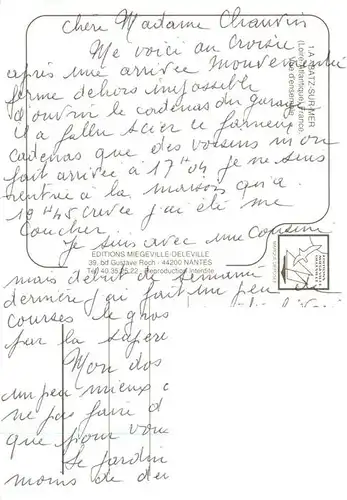 chère Madame Chauvin
Me voici au Croisic
après une arrivée mouvementée
ferme dehors impossible
d'ouvrir le cadenas du garage
il a fallu scier ce fameux
cadenas que des voisins m'on
fait arrivée à 17h04 je ne suis
rentrée à la maison qu'a
19h45 crevée j'ai été me
coucher.
Je suis avec une cousine
mais début de semaine
dernière j'ai fait un peu de
courses le gros
par la
Mon dos
un peu mieux
ne pas faire d
que pour vous
Le jardin
moins de
1.A. BATZ-SUR-MER
(Loire-Atlantique), France.
Vue d'ensemble
EDITIONS MIEGEVILLE-DELEVILLE
39, bd Gustave Roch - 44200 NANTES
Tél. 40.35.25.22 - Reproduction interdite